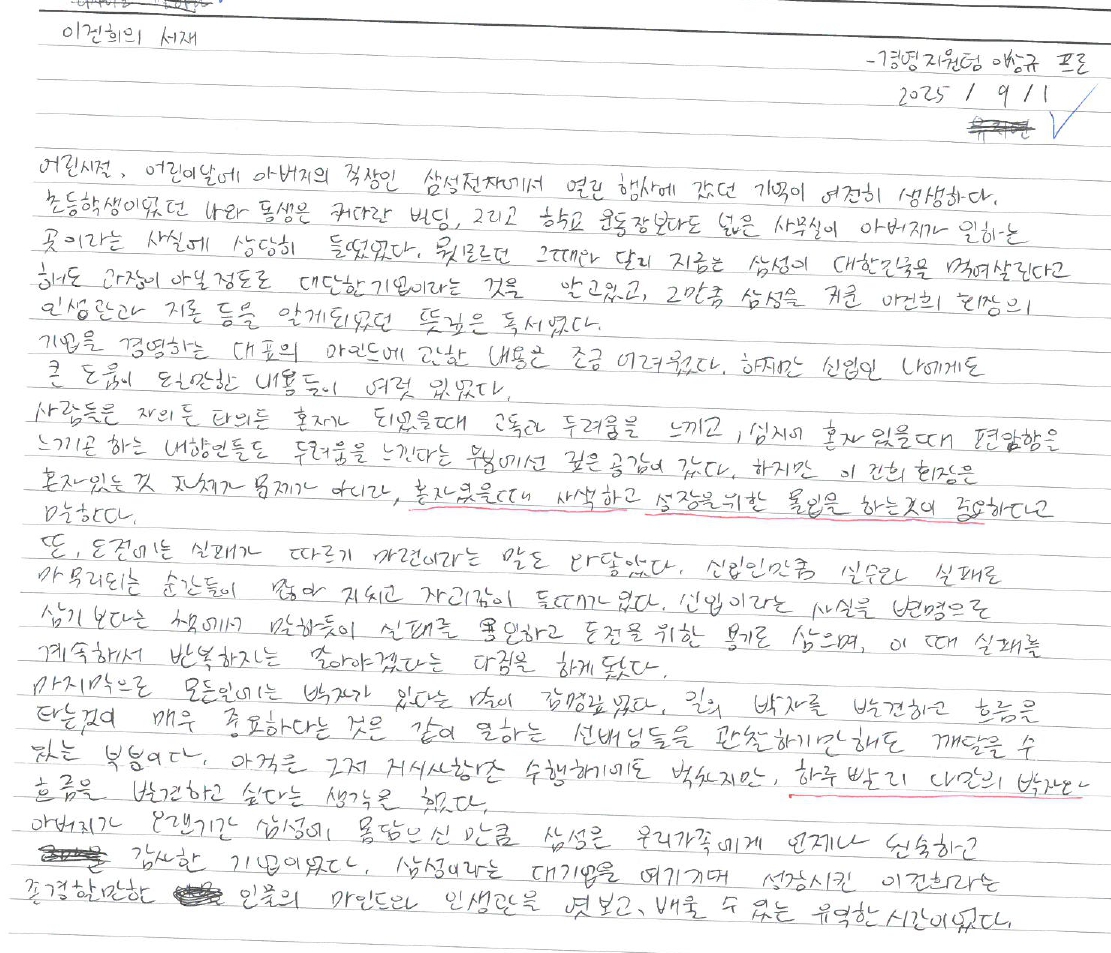 이건희의 서재
-경영지원팀 이상규 프로
2025 / 9 / 1
어린시절, 어린이날에 아버지의 직장인 삼성전자에서 열린 행사에 갔던 기억이 여전히 생생하다.
초등학생이었던 나와 동생은 커다란 빌딩, 그리고 학교 운동장보다도 넓은 사무실이 아버지가 일하는
곳이라는 사실에 상당히 들떴었다. 뭣모르던 그때와 달리 지금은 삼성이 대한민국을 먹여살린다고
해도 과장이 아닐정도로 대단한기업이라는 것을 알고있고, 그만큼 삼성을 키운 이건희 회장의
인생관과 지론 등을 알게되었던 뜻깊은 독서였다.
기업을 경영하는 대표의 마인드에 관한 내용은 조금 어려웠다. 하지만 신입인 나에게도
큰 도움이 될만한 내용들이 여럿 있었다.
사람들은 자의든 타의든 혼자가 되었을때 고독과 두려움을 느끼고, 심지어 혼자 있을때 편안함을
느끼곤 하는 내향인들도 두려움을 느낀다는 부분에선 깊은 공감이 갔다. 하지만 이건희 회장은
혼자있는 것 자체가 문제가 아니라, 혼자있을때 사색하고 성장을위한 몰입을 하는것이 중요하다고
말한다.
또, 도전에는 실패가 따르기 마련이라는 말도 와닿았다. 신입인만큼 실수와 실패로
마무리되는 순간들이 많아 지치고 자괴감이 들때가 있다. 신입이라는 사실을 변명으로
삼기 보다는 책에서 말하듯이 실패를 용인하고 도전을 위한 용기로 삼으며, 이 때 실패를
계속해서 반복하지는 말아야겠다는 다짐을 하게 됐다.
마지막으로 모든일에는 박자가 있다는 말이 감명깊었다. 일의 박자를 발견하고 흐름을
타는것이 매우 중요하다는 것은 같이 일하는 선배님들을 관찰하기만해도 깨달을 수
있는 부분이다. 아직은 그저 지시사항만 수행하기에도 벅차지만, 하루 빨리 나만의 박자와
흐름을 발견하고 싶다는 생각을 했다.
아버지가 오랜기간 삼성에 몸담으신 만큼 삼성은 우리가족에게 언제나 친숙하고
감사한 기업이었다. 삼성이라는 대기업을 여기까지 성장시킨 이건희라는
존경할만한 인물의 마인드와 인생관을 엿보고, 배울 수 있는 유익한 시간이었다.